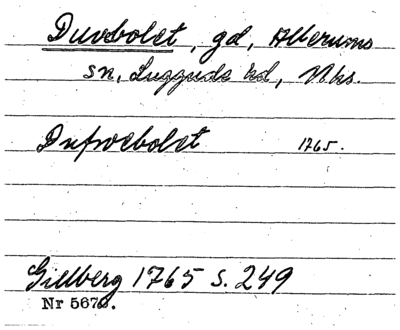 Duvebolet, gd, Allerums
sn, Luggude hd, Mhs.
Dufwebolet 1765.
Gillberg 1765 s. 249
Nr 5678.